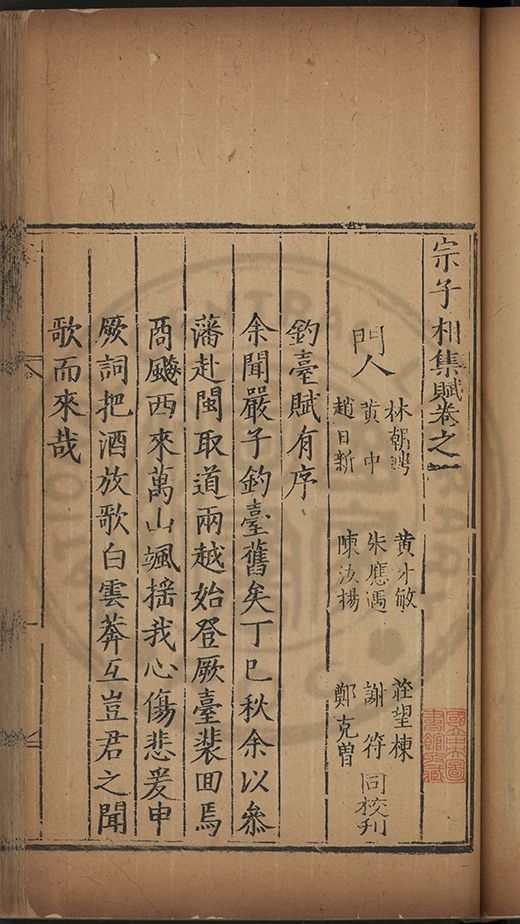 宗子相集賦卷之一
林朝聘 黃才敏 莊望棟
門人 黃中 朱應 謝符 同校刊
趙日新 陳汝揚 鄭克曾
釣臺賦有序
余聞嚴子釣臺舊矣丁巳秋余以叅
藩赴閩取道兩越始登厥臺裴回焉
商飈西來萬山颯揺我心傷悲爰申
厥詞把酒放歌白雲莽互豈君之聞
歌而來哉
國立中央圖
書館收藏